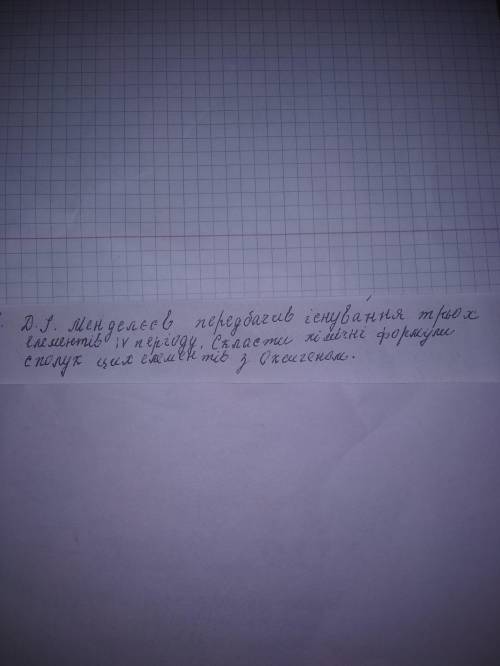 Д.І. Менделєєв передбачив існування трьох
елементів IV періоду. Скласти хімічні формули
сполук цих елементів з Оксигеном.